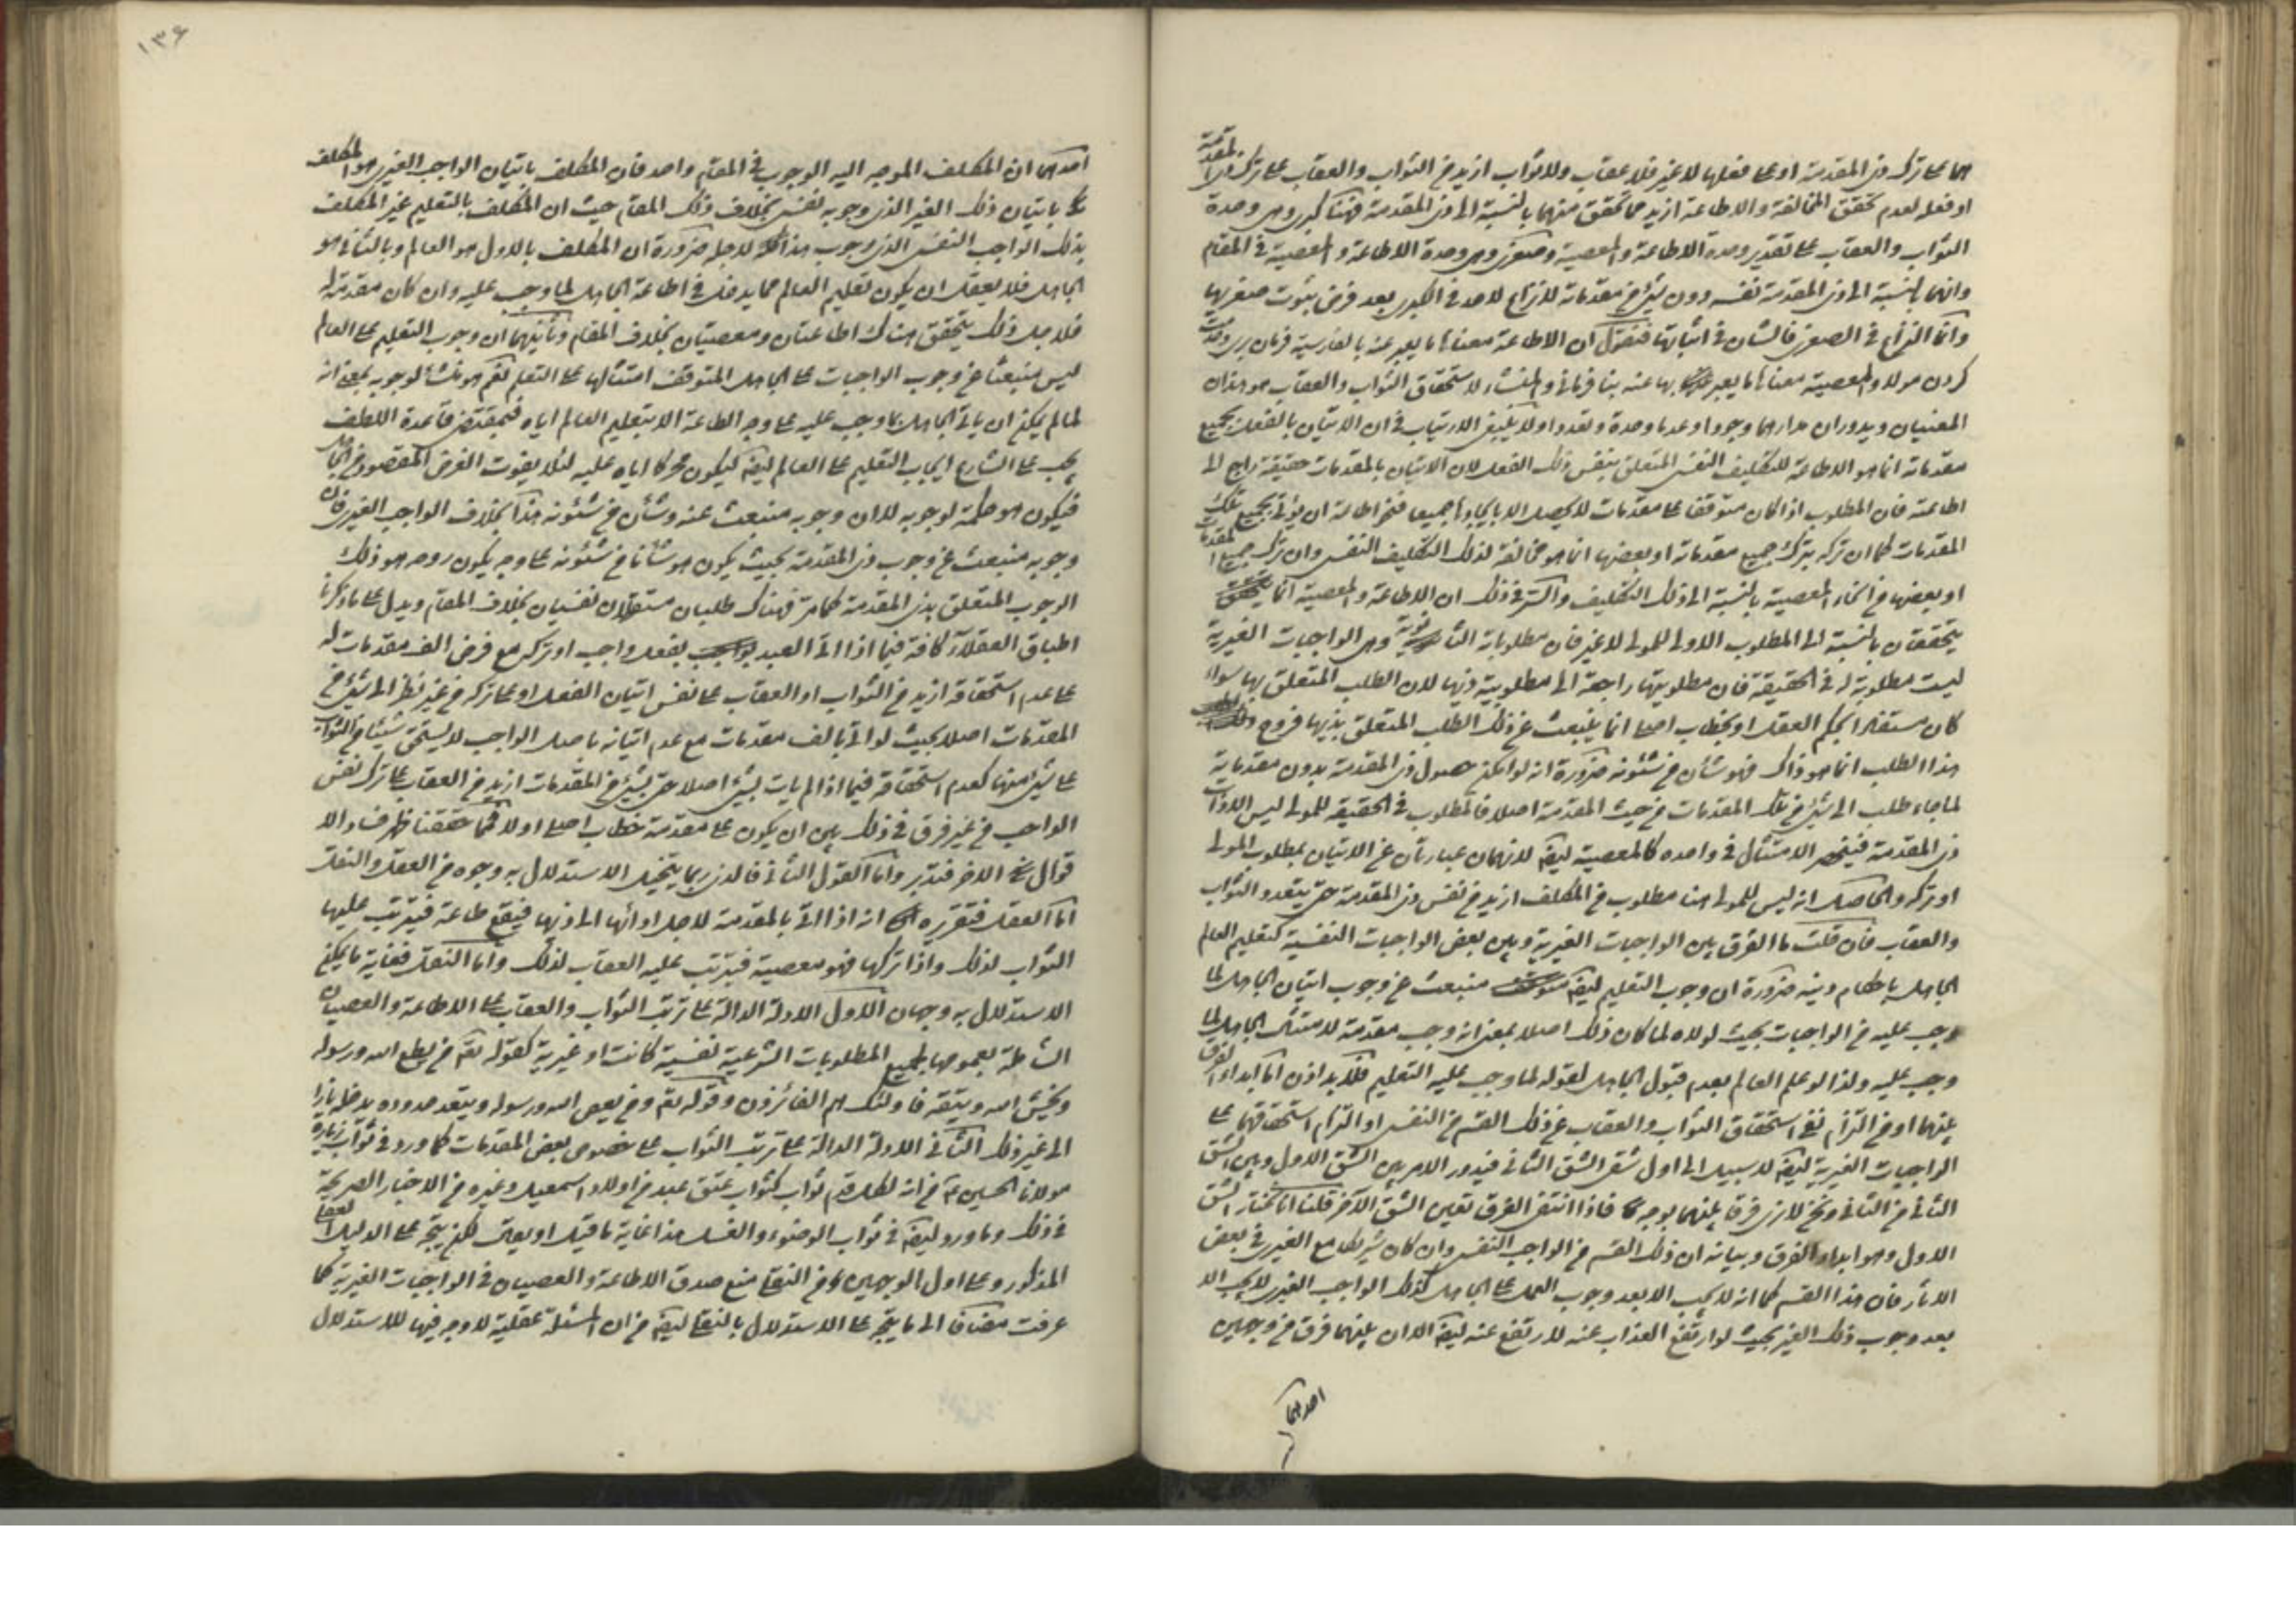 هما على ترك ذى المقدمة او على فعلها لا غير فلا عقاب ولا ثواب ازيد من الثواب والعقاب على ترك ذى المقدمة
او فعله لعدم تحقق المخالفة والاطاعة ازيد مما تحقق منهما بالنسبة الى ذى المقدمة فهنا كبرى وهى وحدة
الثواب والعقاب على تقدير وحدة الاطاعة والمعصية وصغرى وهى وحدة الاطاعة والمعصية فى المقام
وانهما بالنسبة الى ذى المقدمة نفسه دون شىء من مقدماته لا نزاع لاحد فى الكبرى بعد فرض ثبوت صغريها
وانما النزاع فى الصغرى فالشان فى اثباتها فنقول ان الاطاعة معناها ما يعبر عنه بالفارسية فرمان برى
كردن مولا والمعصية معناها ما يعبر بها عنه بنا فرمانى والمنشاء لاستحقاق الثواب والعقاب هو هذان
المعنيان ويدوران مدارهما وجودا وعدما وحدة وتعددا ولا ينبغى الارتياب فى ان الاتيان بالفعل بجميع
مقدماته انما هو الاطاعة للتكليف النفسى المتعلق بنفس ذلك الفعل لان الاتيان بالمقدمات حقيقة راجع الى
اطاعته فان المطلوب اذا كان متوقفا على مقدمات لا يحصل الا بايجادها جميعا فنحو اطاعته ان يؤتى بجميع تلك
المقدمات كما ان تركه بترك جميع مقدماته او بعضها انما هو مخالفة لذلك التكليف النفسى وان ترك جميع المقدمات
او بعضها من انحاء المعصية بالنسبة الى ذلك التكليف والسر فى ذلك ان الاطاعة والمعصية انما
يتحققان بالنسبة الى المطلوب الاولى للمولى لا غير فان مطلوباته الثانوية وهى الواجبات الغيرية
ليست مطلوبة له فى الحقيقة فان مطلوبيتها راجعة الى مطلوبية ذيها لان الطلب المتعلق بها سواء
كان مستفادا بحكم العقل او بخطاب اصلى انما ينبعث عن ذلك الطلب المتعلق بذيها فروح
هذا الطلب انما هو ذاك فهو شان من شئونه ضرورة انه لو امكن حصول ذى المقدمة بدون مقدماته
لما جاء طلب الى شىء من تلك المقدمات من حيث المقدمة اصلا فالمطلوب فى الحقيقة للمولى ليس الا ذات
ذى المقدمة فينحصر الامتثال فى واحد كالمعصية ايضا لانهما عبارتان عن الاتيان بمطلوب المولى
او تركه والحاصل انه ليس للمولى هنا مطلوب من المكلف ازيد من نفس ذى المقدمة حتى يتعدد الثواب
والعقاب فان قلت ما الفرق بين الواجبات الغيرية وبين بعض الواجبات النفسية كتعليم العالم
الجاهل باحكام دينه ضرورة ان وجوب التعليم ايضا منبعث عن وجوب اتيان الجاهل لما
وجب عليه من الواجبات بحيث لولاه لما كان ذلك اصلا بمعنى انه وجب مقدمة لامتثال الجاهل لما
وجب عليه ولذا لو علم العالم بعدم قبول الجاهل لقوله لما وجب عليه التعليم فلا بد اذن اما ابداء الفرق
بينهما او من التزام نفى استحقاق الثواب والعقاب عن ذلك القسم من النفسى او التزام استحقاقهما على
الواجبات الغيرية ايضا لا سبيل الى اول شقى الشق الثانى فيدور الامر بين الشق الاول وبين الشق
الثانى من الثانى ونحن لا نرى فرقا بينهما بوجه فاذا انتفى الفرق تعين الشق الآخر قلنا انا نختار الشق
الاول وهو ابداء الفرق وبيانه ان ذلك القسم من الواجب النفسى وان كان شريكا مع الغيرى فى بعض
الاثار فان هذا القسم كما انه لا يجب الا بعد وجوب العمل على الجاهل كذلك الواجب الغيرى لا يجب الا
بعد وجوب ذلك الغير بحيث لو ارتفع العذاب عنه لارتفع عنه ايضا الا ان بينهما فرق من وجهين
احدهما
١٣۶
احدهما ان المكلف الموجه اليه الوجوب فى المقام واحد فان المكلف باتيان الواجب الغيرى هو المكلف
باتيان ذلك الغير الذى وجوبه نفسى بخلاف ذلك المقام حيث ان المكلف بالتعليم غير المكلف
بذلك الواجب النفسى الذى وجوب هذا لاجله ضرورة ان المكلف بالاول هو العالم وبالثانى هو
الجاهل فلا يعقل ان يكون تعليم العالم مما يدخل فى اطاعة الجاهل لما وجب عليه وان كان مقدمة له
فلاجل ذلك يتحقق هناك اطاعتان ومعصيتان بخلاف المقام وثانيهما ان وجوب التعليم على العالم
ليس منبعثا عن وجوب الواجبات على الجاهل المتوقف امتثالها على التعلم نعم هو منشأ لوجوبه بمعنى انه
لما لم يكن ان ياتى الجاهل بما وجب عليه على وجه الطاعة الا بتعليم العالم اياه فبمقتضى قاعدة اللطف
يجب على الشارع ايجاب التعليم على العالم ايضا ليكون محركا اياه عليه لئلا يفوت الغرض المقصود من
فيكون هو حكمة لوجوبه لا ان وجوبه منبعث عنه وشأن من شئونه هذا بخلاف الواجب الغيرى فان
وجوبه منبعث عن وجوب ذى المقدمة بحيث يكون هو شأنا من شئونه على وجه يكون روحه هو ذلك
الوجوب المتعلق بذى المقدمة كما مر فهناك طلبان مستقلان نفسيان بخلاف المقام ويدل على ما ذكرنا
اطباق العقلاء كافة فيما اذا اتى العبد بفعل واجب او تركه مع فرض الف مقدمات له
على عدم استحقاقه ازيد من الثواب او العقاب على نفس اتيان الفعل او على تركه من غير نظر الى شىء من
المقدمات اصلا بحيث لو اتى بالف مقدمات مع عدم اتيانه باصل الواجب لا يستحق شيئا من الثواب
على شىء منها كعدم استحقاقه فيما اذا لم يات بشىء اصلا حتى بشىء من المقدمات ازيد من العقاب على ترك نفس
الواجب من غير فرق فى ذلك بين ان يكون على مقدمته خطاب اصلى او لا فمما حققنا ظهر فساد الا
قوال الاخر فتدبر واما القول الثانى فالذى ربما يتخيل الاستدلال به وجوه من العقل والنقل
اما العقل فتقريره انه اذا اتى بالمقدمة لاجل ادائها الى ذيها فيقع طاعة فيترتب عليها
الثواب لذلك واذا تركها فهو معصية فيترتب عليه العقاب لذلك واما النقل فغاية ما يمكن
الاستدلال به وجهان الاول الادلة الدالة على ترتب الثواب والعقاب على الاطاعة والعصيان
الشاملة بعمومها لجميع المطلوبات الشرعية نفسية كانت او غيرية كقوله تعالى من يطع الله ورسوله
ويخش الله ويتقه فاولئك هم الفائزون وقوله تعالى ومن يعص الله ورسوله ويتعد حدوده يدخله نارا
الى غير ذلك الثانى الادلة الدالة على ترتب الثواب على خصوص بعض المقدمات كما ورد فى ثواب زيارة
مولانا الحسين ع من انه لكل قدم ثواب كثواب عتق عبد من اولاد اسمعيل وغيره من الاخبار الصريحة
فى ذلك وما ورد ايضا فى ثواب الوضوء والغسل هذا غاية ما قيل او يقال لكن يتجه على الدليل العقلى
المذكور وعلى اول الوجهين من النقلى منع صدق الاطاعة والعصيان فى الواجبات الغيرية كما
عرفت مضافا الى ما يتجه على الاستدلال بالنقلى ايضا من ان المسئلة عقلية لا وجه فيها للاستدلال